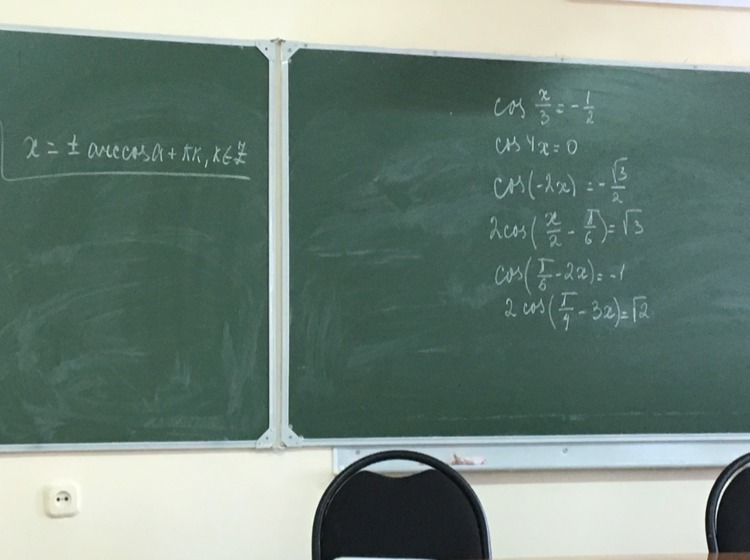 x = ± arccosa + πk, k ∈ Z
cos x/3 = -1/2
cos 4x = 0
cos(-2x) = -√3/2
2cos(x/2 - π/6) = √3
cos(π/6 - 2x) = -1
2 cos(π/4 - 3x) = √2